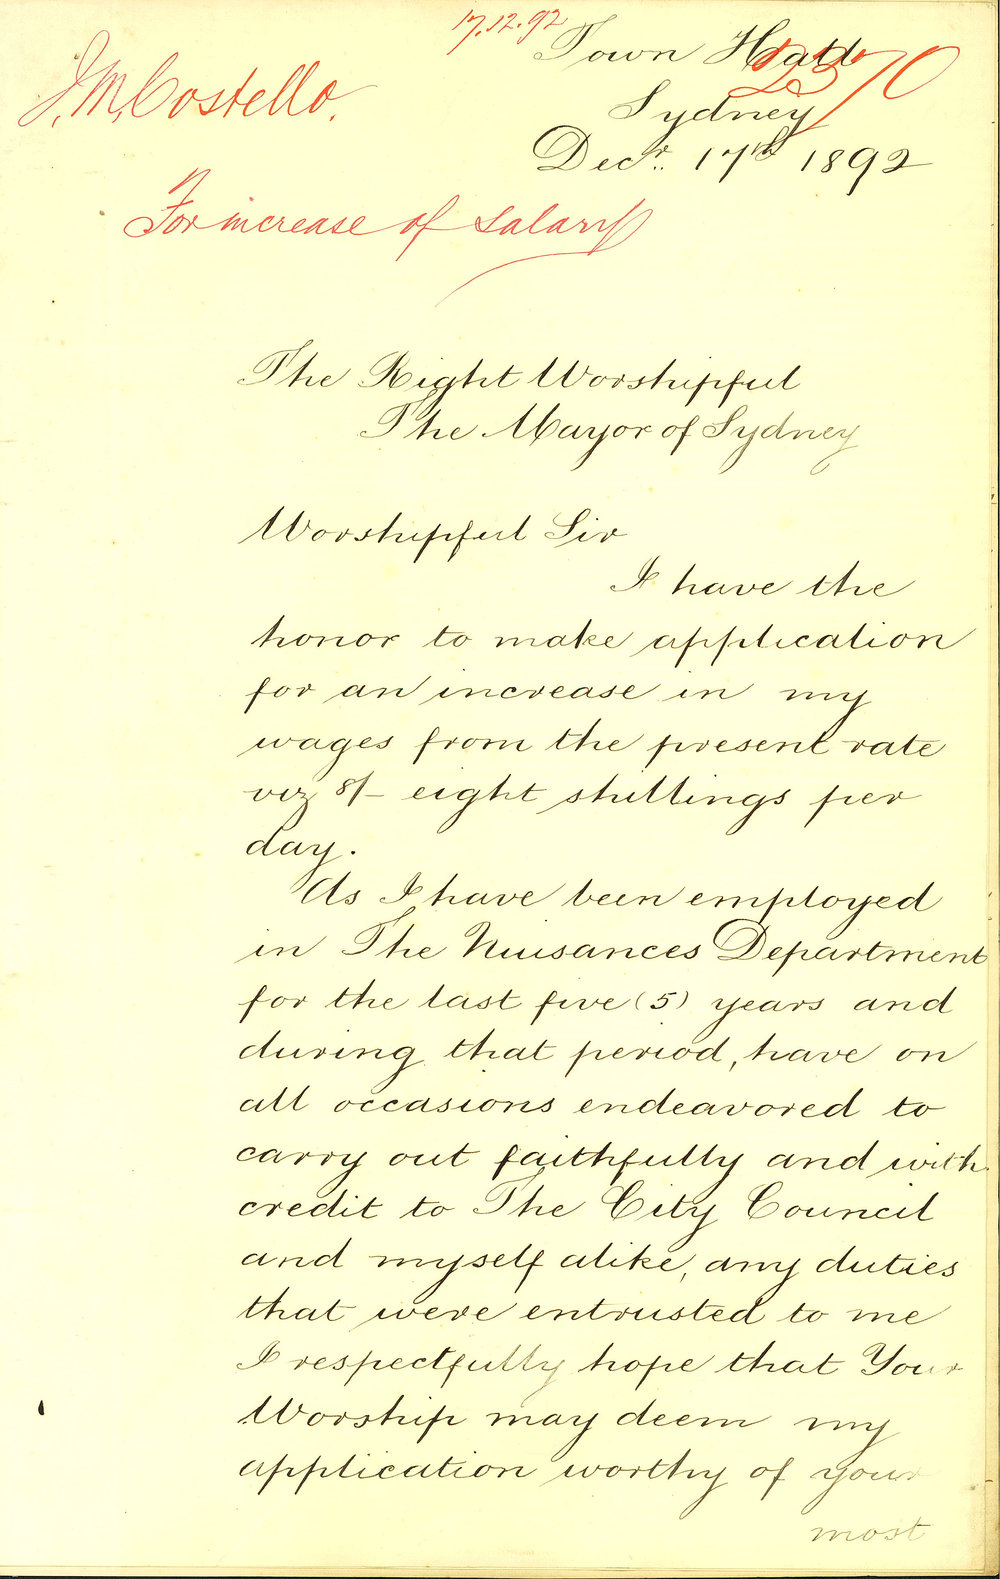 17.12.92
Town Hall
2370
J. M. Costello.
Sydney
Decr. 17th 1892
For increase of salary
The Right Worshipful
The Mayor of Sydney
Worshipful Sir
I have the
honor to make application
for an increase in my
wages from the present rate
viz 8/- eight shillings per
day.
As I have been employed
in The Nuisances Department
for the last five (5) years and
during that period, have on
all occasions endeavored to
carry out faithfully and with
credit to The City Council
and myself alike, any duties
that were entrusted to me
I respectfully hope that Your
Worship may deem my
application worthy of your
most